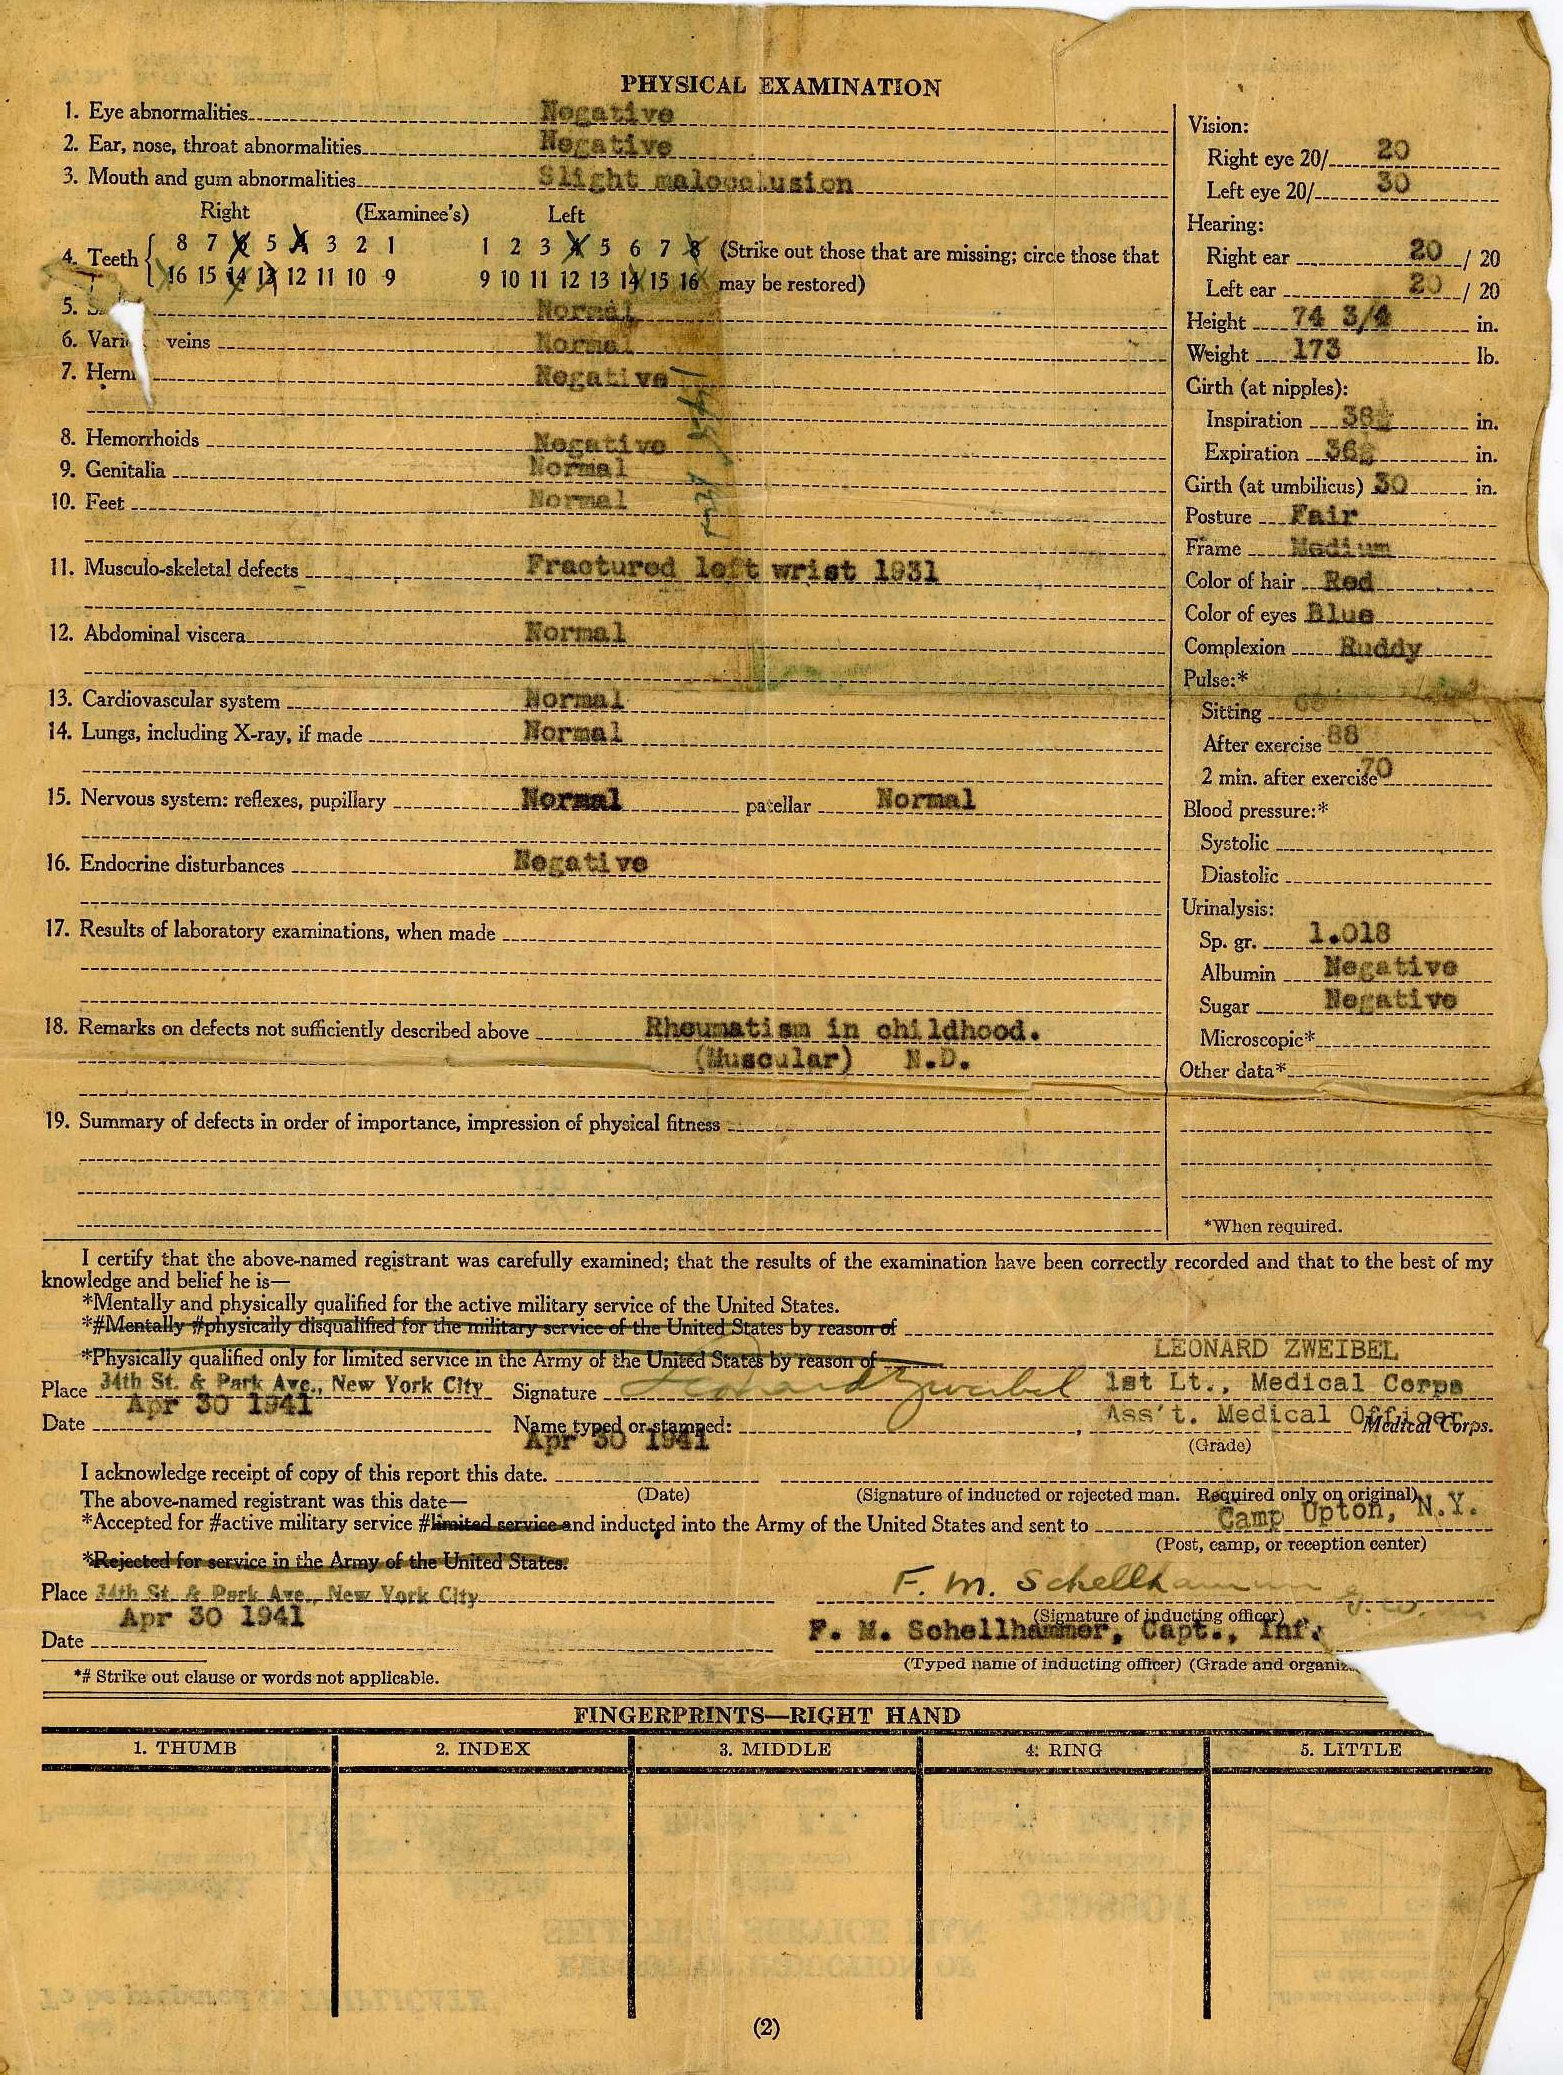 PHYSICAL EXAMINATION
1. Eye abnormalities Negative
2. Ear, nose, throat abnormalities Negative
3. Mouth and gum abnormalities Slight malocclusion
Right (Examinee's) Left
4. Teeth
8 7 6 5 4 3 2 1 1 2 3 4 5 6 7 8 (Strike out those that are missing; circle those that
16 15 14 13 12 11 10 9 9 10 11 12 13 14 15 16 may be restored)
5. Normal
6. Vari veins Normal
7. Herni Negative
8. Hemorrhoids Negative
9. Genitalia Normal
10. Feet Normal
11. Musculo-skeletal defects Fractured left wrist 1931
12. Abdominal viscera Normal
13. Cardiovascular system Normal
14. Lungs, including X-ray, if made Normal
15. Nervous system: reflexes, pupillary Normal patellar Normal
16. Endocrine disturbances Negative
17. Results of laboratory examinations, when made
18. Remarks on defects not sufficiently described above Rheumatism in childhood.
(Muscular) N.D.
19. Summary of defects in order of importance, impression of physical fitness
Vision:
Right eye 20/ 20
Left eye 20/ 30
Hearing:
Right ear 20 / 20
Left ear 20 / 20
Height 74 3/4 in.
Weight 173 lb.
Girth (at nipples):
Inspiration 38½ in.
Expiration 36½ in.
Girth (at umbilicus) 30 in.
Posture Fair
Frame Medium
Color of hair Red
Color of eyes Blue
Complexion Ruddy
Pulse:*
Sitting 68
After exercise 88
2 min. after exercise 70
Blood pressure:*
Systolic
Diastolic
Urinalysis:
Sp. gr. 1.018
Albumin Negative
Sugar Negative
Microscopic*
Other data*
*When required.
I certify that the above-named registrant was carefully examined; that the results of the examination have been correctly recorded and that to the best of my
knowledge and belief he is—
*Mentally and physically qualified for the active military service of the United States.
*#Mentally #physically disqualified for the military service of the United States by reason of
*Physically qualified only for limited service in the Army of the United States by reason of
LEONARD ZWEIBEL
Place 34th St. & Park Ave., New York City Signature Leonard Zweibel 1st Lt., Medical Corps
Apr 30 1941 Ass't. Medical Officer
Date Name typed or stamped: , Medical Corps.
Apr 30 1941 (Grade)
I acknowledge receipt of copy of this report this date.
(Date) (Signature of inducted or rejected man. Required only on original)
The above-named registrant was this date—
*Accepted for #active military service #limited service and inducted into the Army of the United States and sent to Camp Upton, N.Y.
(Post, camp, or reception center)
*Rejected for service in the Army of the United States.
Place 34th St. & Park Ave., New York City F. M. Schellhammer
(Signature of inducting officer)
Apr 30 1941 F. M. Schellhammer, Capt., Inf.
Date
(Typed name of inducting officer) (Grade and organiz
*# Strike out clause or words not applicable.
FINGERPRINTS—RIGHT HAND
1. THUMB 2. INDEX 3. MIDDLE 4. RING 5. LITTLE
(2)